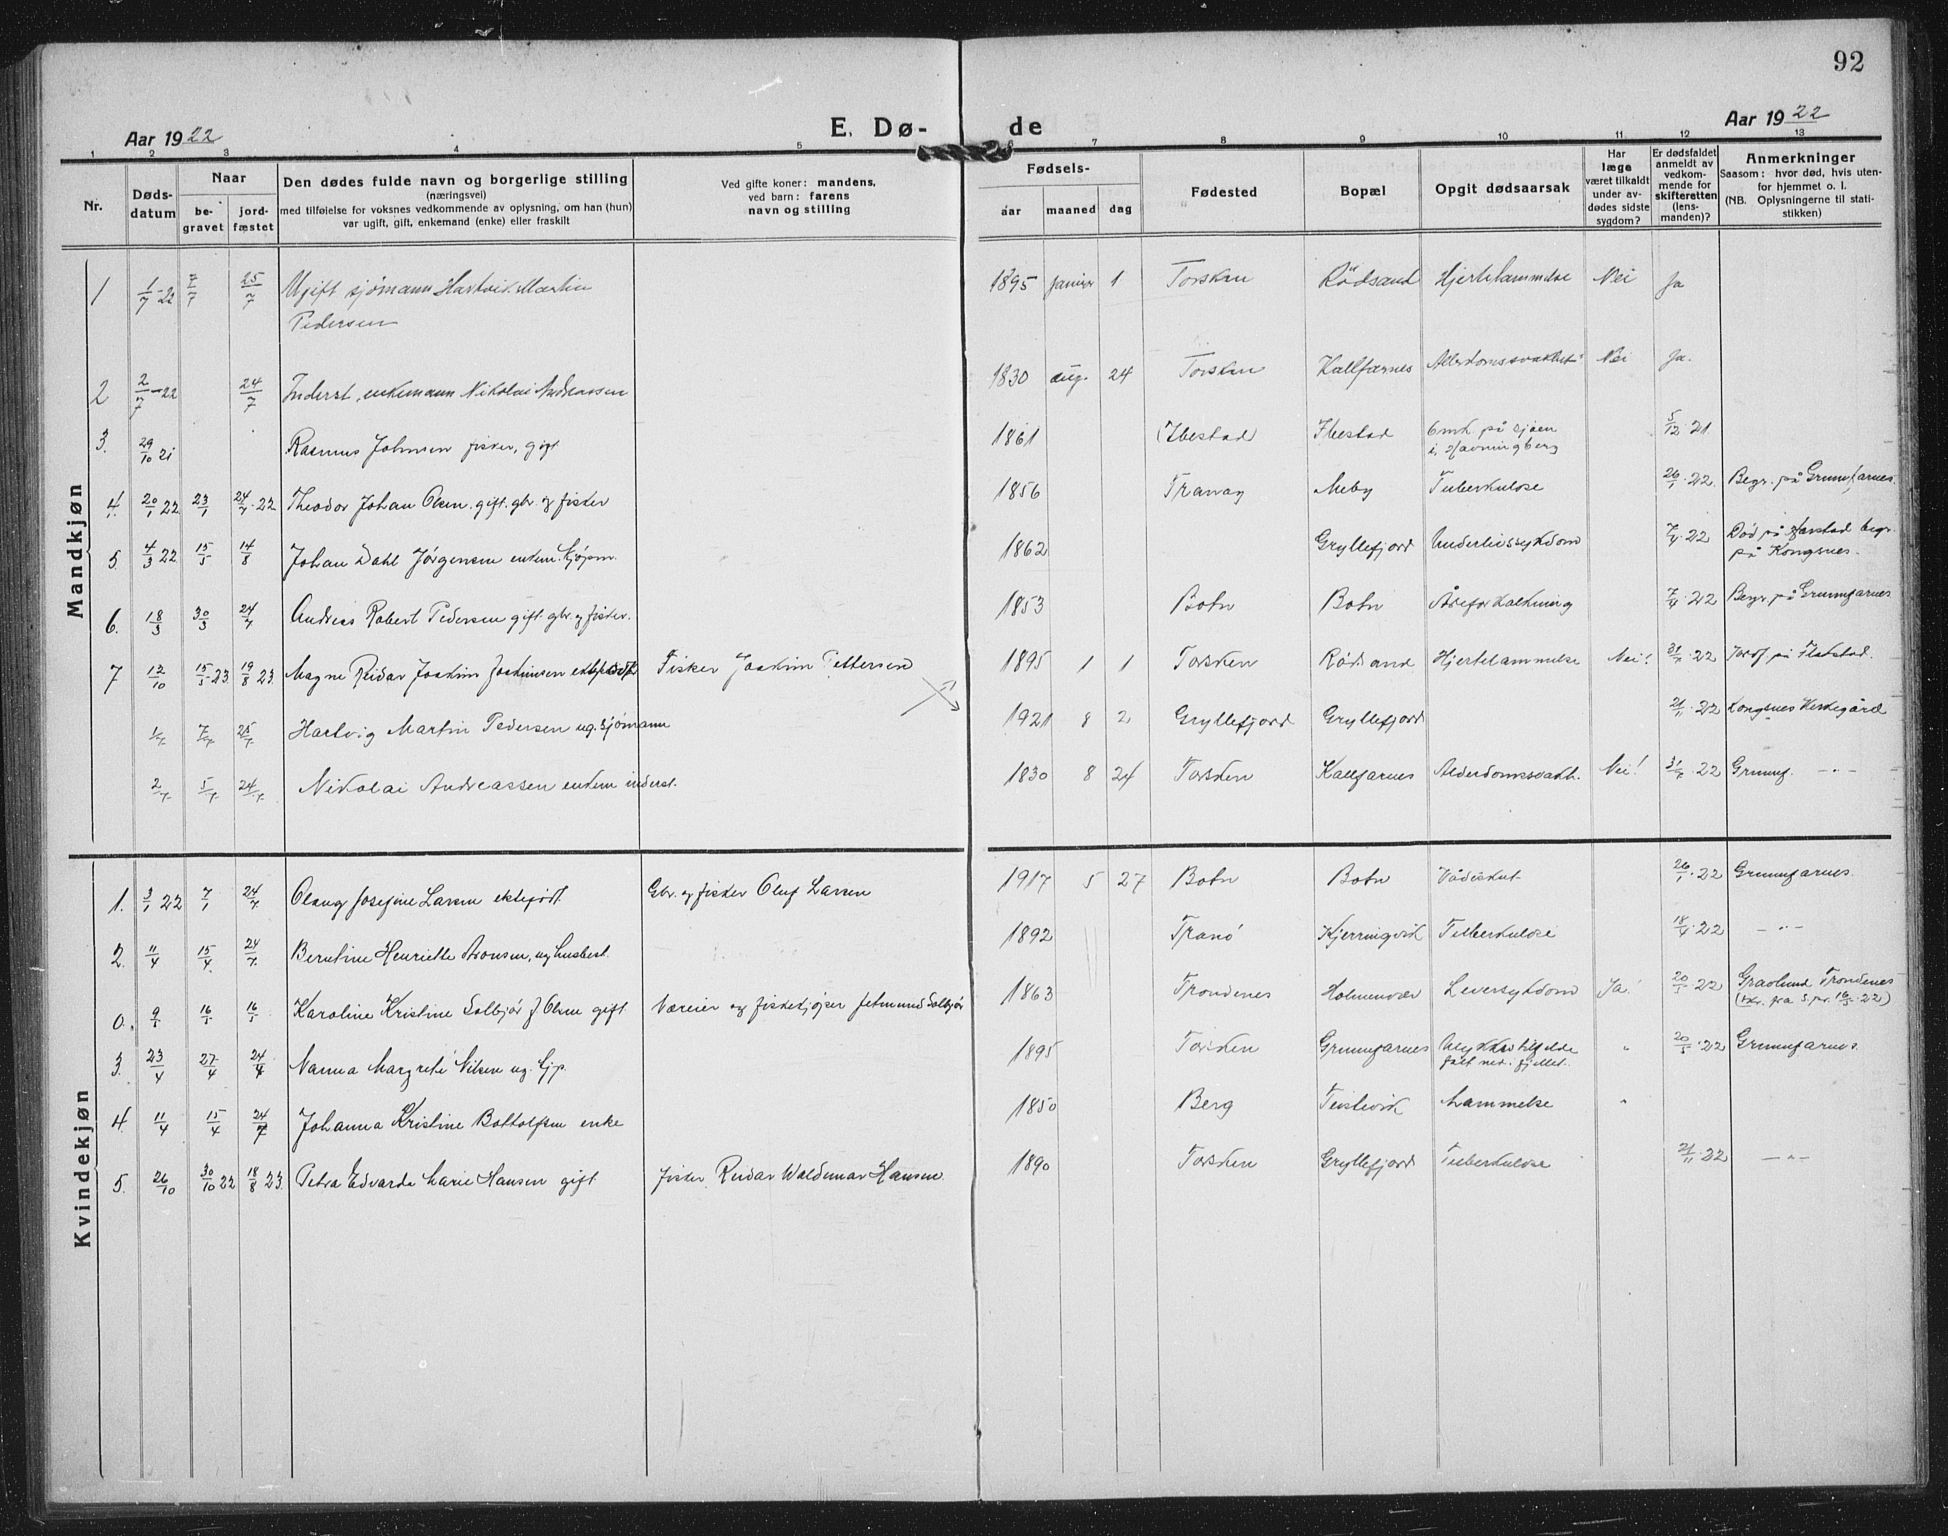 92
Aar 1922 E. Dø- de Aar 1922
1 2 3 4 5 6 7 8 9 10 11 12 13
Nr.
Døds-
datum
Naar
be-
gravet
jord-
fæstet
Den dødes fulde navn og borgerlige stilling
(næringsvei)
med tilføielse for voksnes vedkommende av oplysning, om han (hun)
var ugift, gift, enkemand (enke) eller fraskilt
Ved gifte koner: mandens,
ved barn: farens
navn og stilling
Fødsels-
aar maaned dag
Fødested
Bopæl
Opgit dødsaarsak
Har
læge
været tilkaldt
under av-
dødes sidste
sygdom?
Er dødsfaldet
anmeldt av
vedkom-
mende for
skifteretten
(lens-
manden)?
Anmerkninger
Saasom: hvor død, hvis uten-
for hjemmet o. l.
(NB. Oplysningerne til stati-
stikken)
Mandkjøn
1 1/7-22 7/7 25/7 Ugift sjømann Hartvik Martin 1895 januar 1 Torsken Rödsand Hjertelammelse Nei Ja
Pedersen
2 2/7-22 24/7 Inderst, enkemann Nikolai Andreassen 1830 aug. 24 Torsken Kallfarnes Alderdomssvakhet Nei Ja.
3. 29/10 21 Rasmus Johnsen fisker, gift 1861 (Ibestad) Ibestad Omk. på sjøen 5/12 21
i Havningberg
4. 20/1 22 23/1 24/7 22 Theodor Johan Olsen. gift. gbr. og fisker 1856 Tranøy Meby Tuberkulose 26/1 22. Begr. på Grunnfarnes
5. 4/3 22 15/5 14/8 Johan Dahl Jörgensen enkem. kjøpm. 1862 Gryllefjord Underlivssykdom 7/4 22 Död på Harstad begr.
på Kongsnes.
6. 18/3 30/3 24/7 Andreas Robert Pedersen gift gbr. og fisker. 1853 Botn Botn Åreforkalkning 7/4 22 Begr. på Grunnfarnes
7 12/10 15/5 23 19/8 23. Magne Reidar Joakim Joakimsen ektefødt Fisker Joakim Pettersen 1895 1 1 Torsken Rödsand Hjertelammelse Nei! 31/7 22 Jordf på Flakstad.
1/7 7/7 25/7 Hartvig Martin Pedersen ug. sjömann 1921 8 2 Gryllefjord Gryllefjord 21/11 22 Kongsnes kirkegård
2/7 5/7 24/7 Nikolai Andreassen enkem inderst. 1830 8 24 Torsken Kallfarnes Alderdomssvakh. Nei! 31/7 22 Grunnf. —"—
Kvindekjøn
1. 3/1 22 7/1 24/7 Olaug Josefine Larsen ektefødt. Gbr. og fisker Oluf Larsen 1917 5 27 Botn Botn Vådeskut 26/1 22 Grunnfarnes.
2. 11/4 15/4. 24/7 Berntine Henriette Aronsen, ug husbest. 1892 Tranö Kjerringvik Tuberkulose 18/4 22 —"—
0. 9/5 16/5 16/5 Karoline Kristine Solbjör f. Olsen gift Væreier og fiskekjøper Jetmund Solbjör 1863 Trondenes Holmenvær Leversykdom Ja! 20/5 22 Gravlund Trondenes
3. 23/4 27/4 24/4 Nanna Margrete Nilsen ug. tjp. 1895 Torsken Grunnfarnes Ulykkestilfelde " 20/5 22 Grunnfarnes.
falt ned i fjellet.
4. 11/4 15/4 24/7 Johanna Kristine Bottolfsen enke 1850 Berg Teistevik Lammelse "
5. 26/10 30/10 22 18/8 23. Petra Edvarda Marie Hansen gift fisker Reidar Waldemar Hansen. 1890 Torsken Gryllefjord Tuberkulose 21/11 22 —"—